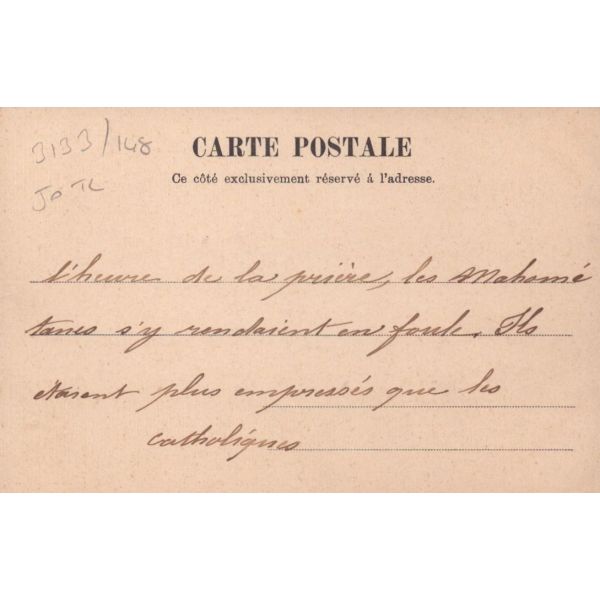 3133/148
CARTE POSTALE
Ce côté exclusivement réservé á l'adresse.
50 TL
l'heure de la prière, les Mahomé
tans s'y rendaient en foule. Ils
étaient plus empressés que les
catholiques